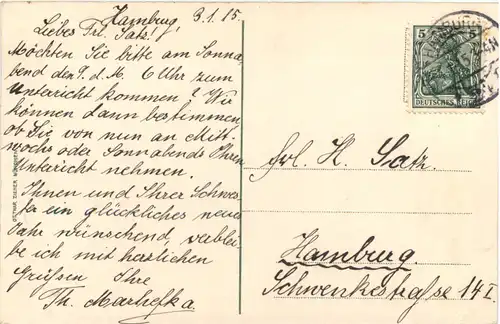 Hamburg, 3.1.15.
Liebes Frl. Satz!
Möchten Sie bitte am Sonna-
bend den 9. d. M. 6 Uhr zum
Unterricht kommen? Wir
können dann bestimmen,
ob Sie von nun an Mitt-
wochs oder Sonnabends Ihren
Unterricht nehmen.
Ihnen und Ihrer Schwes-
ter ein glückliches neues
Jahr wünschend, verblei-
be ich mit herzlichen
Grüßen Ihre
Th. Marhefka.
5
DEUTSCHES REICH
HAMBURG
Frl. H. Satz.
Hamburg
Schwenkestraße 14 I.